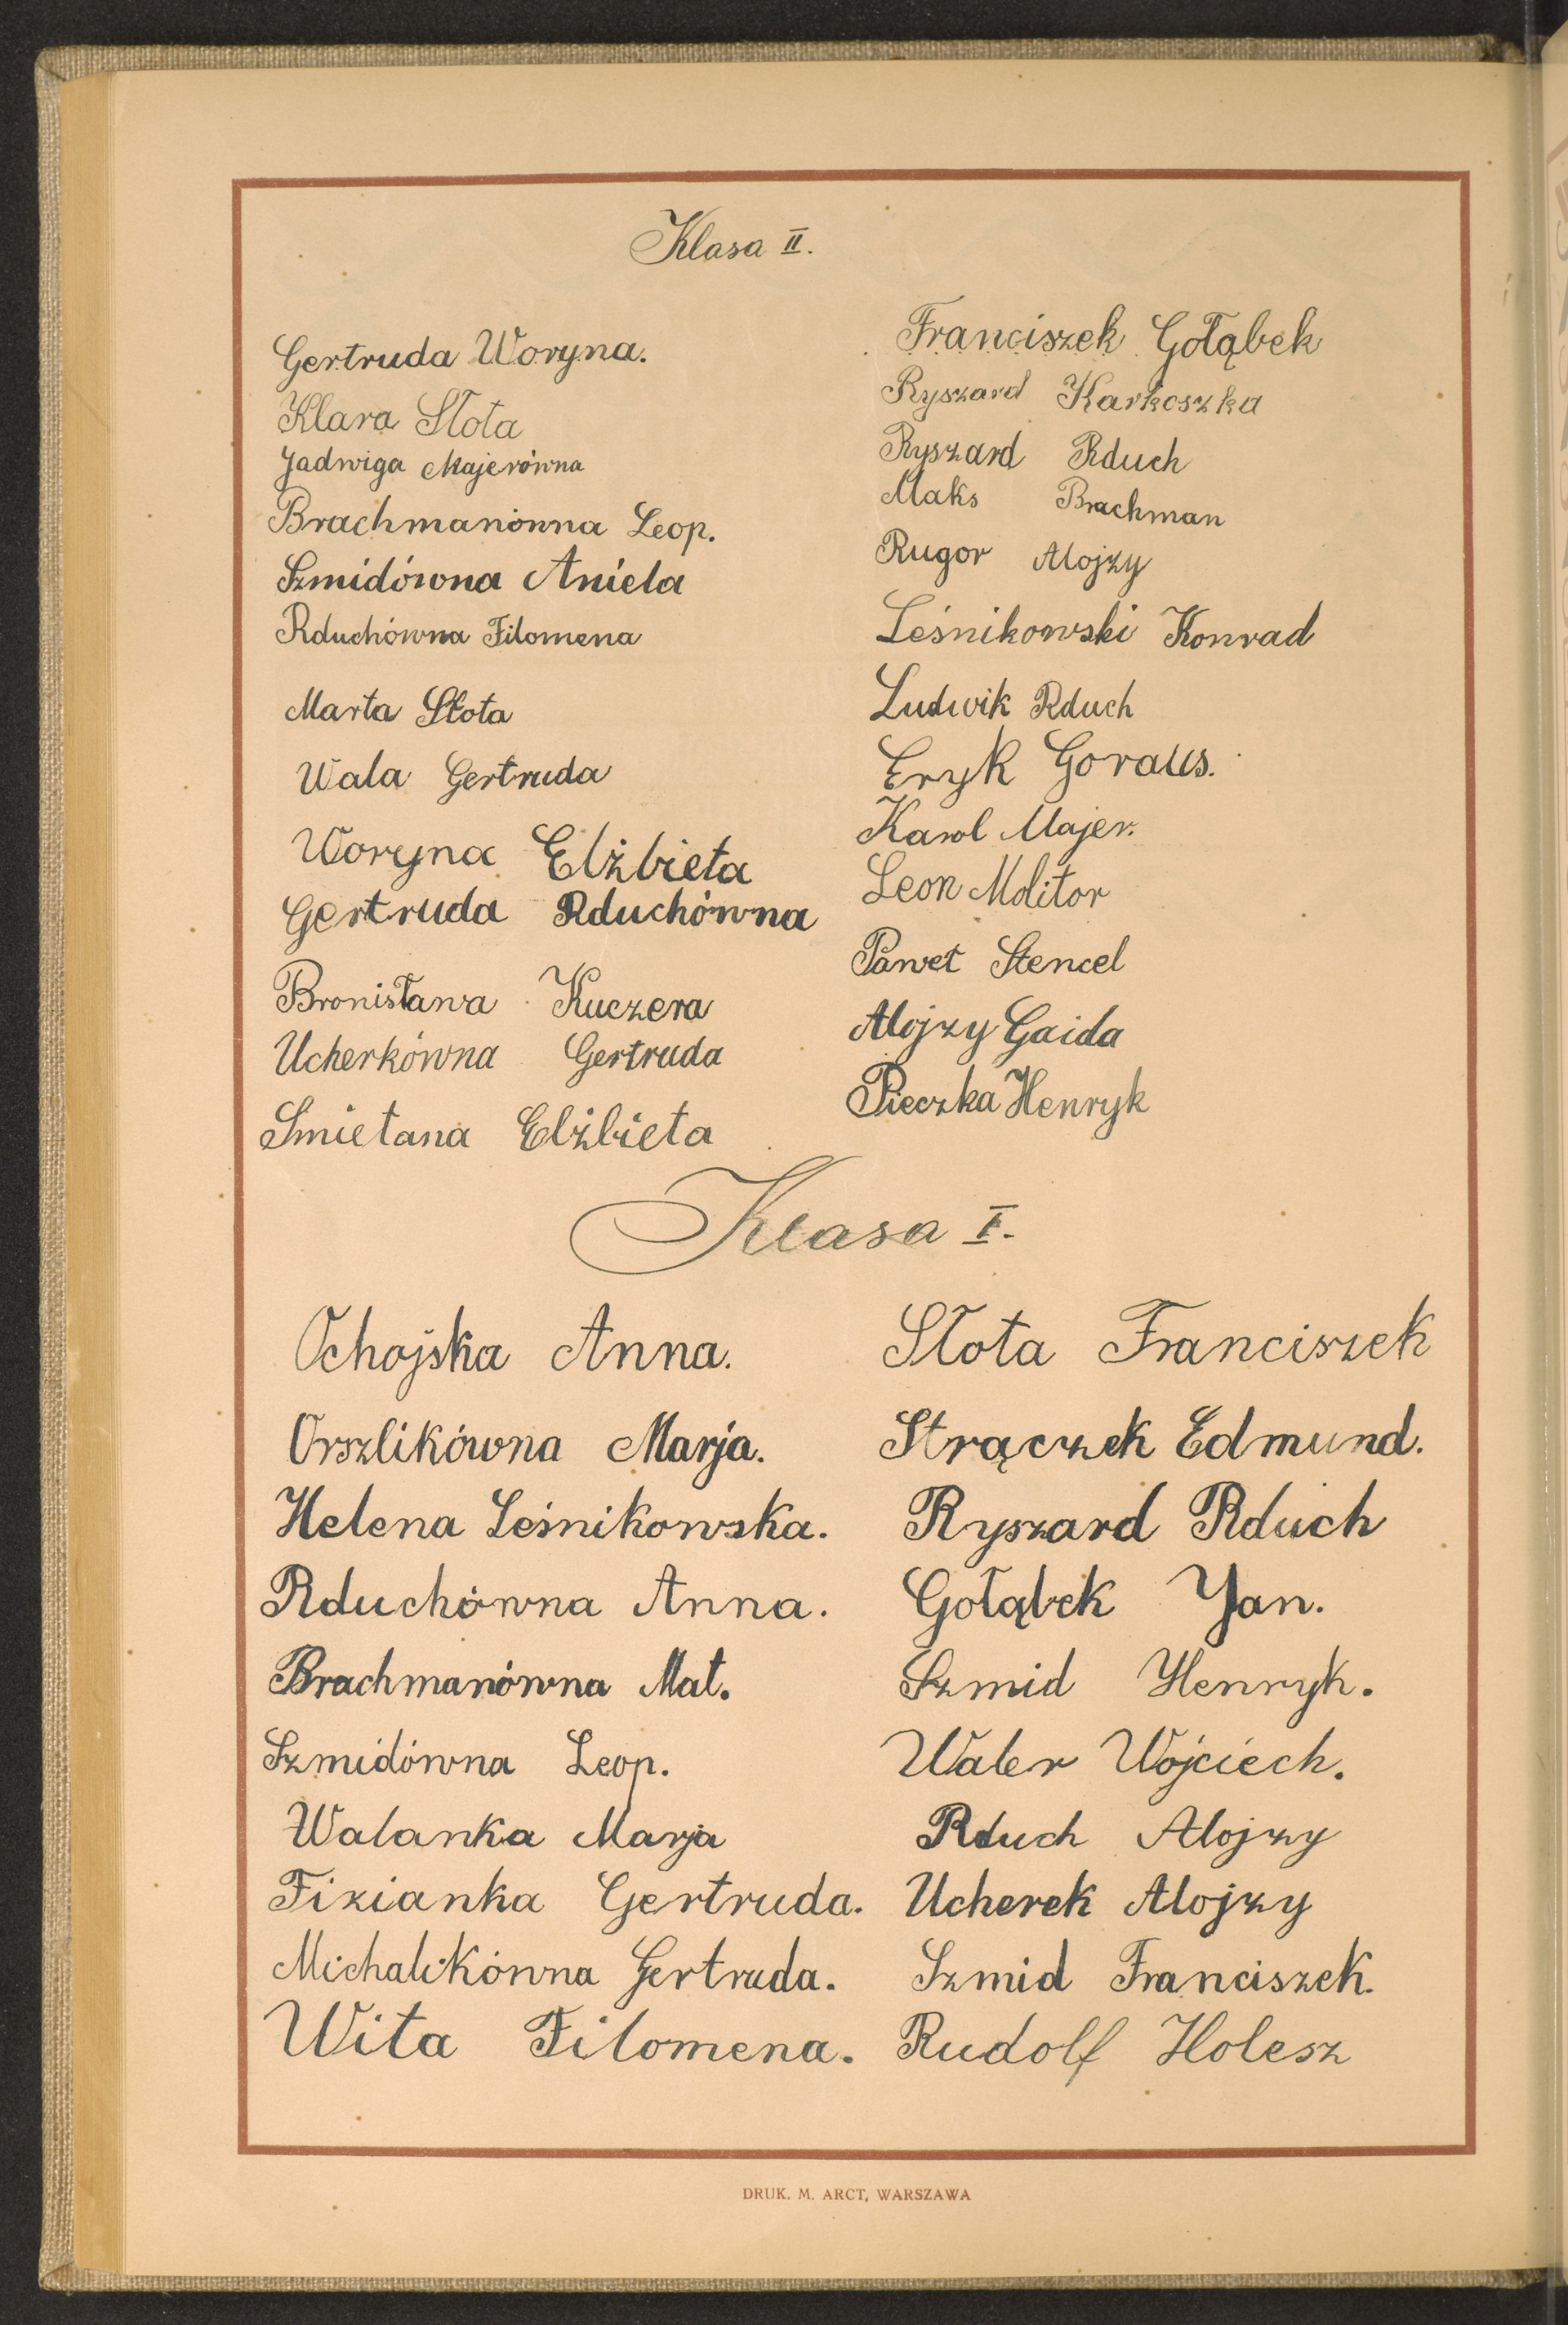 Klasa II.
Gertruda Woryna.
Klara Słota
Jadwiga Majerówna
Brachmanówna Leop.
Szmidówna Aniela
Rduchówna Filomena
Marta Słota
Wala Gertruda
Woryna Elżbieta
Gertruda Rduchówna
Bronisława Kuczera
Ucherkówna Gertruda
Smietana Elżbieta
Franciszek Gołąbek
Ryszard Karkoszka
Ryszard Rduch
Maks Brachman
Rugor Alojzy
Leśnikowski Konrad
Ludwik Rduch
Eryk Goraus.
Karol Majer.
Leon Molitor
Paweł Stencel
Alojzy Gaida
Pieczka Henryk
Klasa I.
Ochojska Anna.
Orszlikówna Marja.
Helena Leśnikowska.
Rduchówna Anna.
Brachmanówna Mat.
Szmidówna Leop.
Walanka Marja
Fizianka Gertruda.
Michalikówna Gertruda.
Wita Filomena.
Słota Franciszek
Strączek Edmund.
Ryszard Rduch
Gołąbek Jan.
Szmid Henryk.
Waler Wojciech.
Rduch Alojzy
Ucherek Alojzy
Szmid Franciszek.
Rudolf Holesz
DRUK. M. ARCT, WARSZAWA